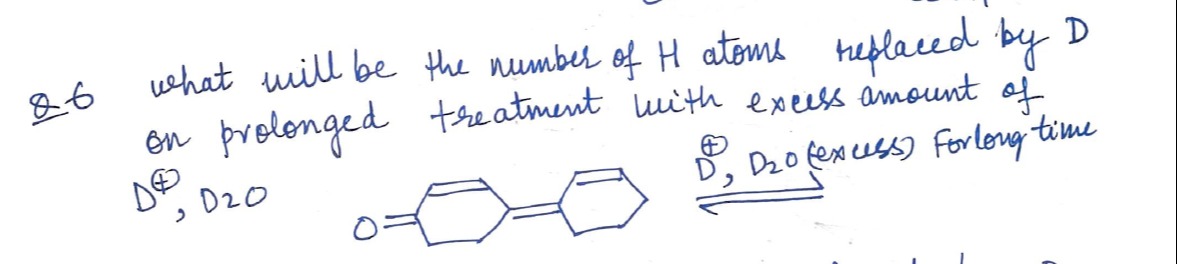 Q-6 what will be the number of H atoms replaced by D
on prolonged treatment with excess amount of
D⊕, D2O
O
D⊕, D2O (excess) For long time